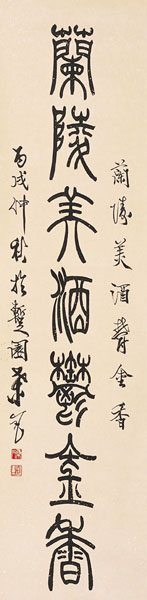 蘭陵美酒鬱金香
蘭陵美酒鬱金香
丙戌仲秋於龔園